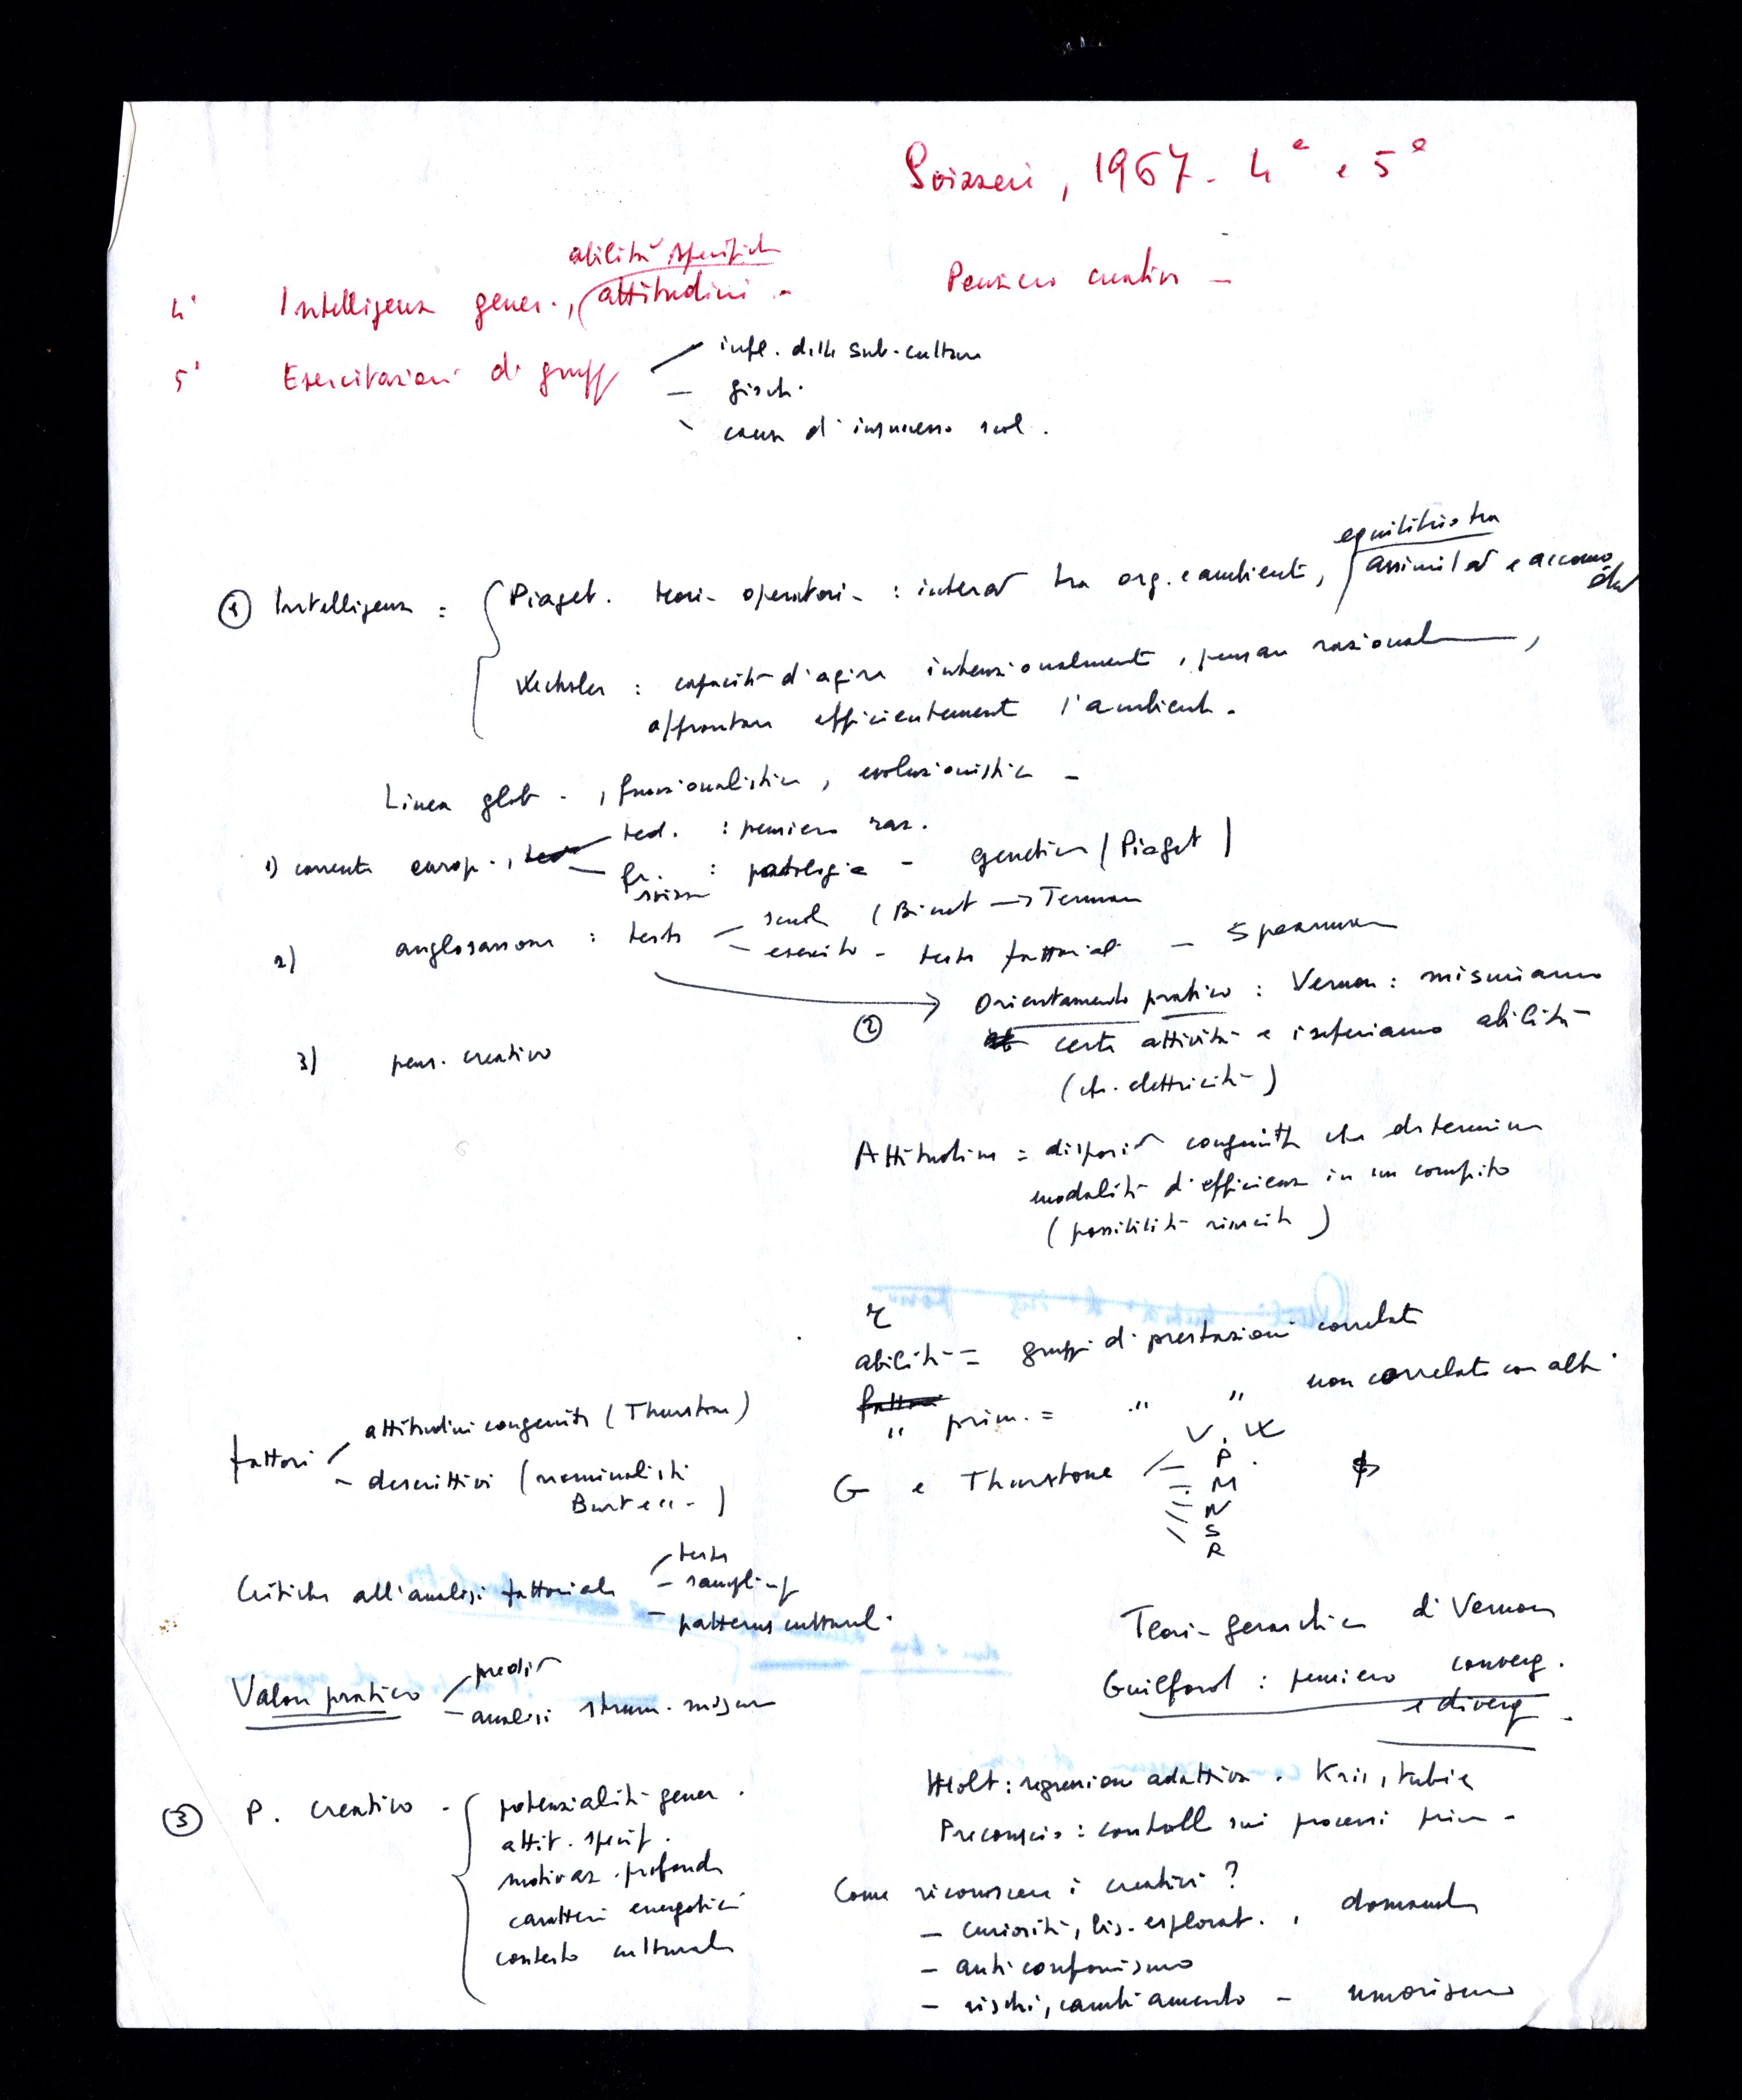 Svizzeri, 1967 - 4ª e 5ª
abilità specifich
4ª Intelligenza gener., attitudini - Pensiero creativo -
5ª Esercitazioni di grupp
infl. delle sub-culture
giochi
cause d'insuccesso scol.
① Intelligenza = Piaget. teori- operatori- : interaz tra org. e ambiente, equilibrio tra assimilaz e accomodaz
Wechsler : capacità d'agire intenzionalmente, pensare razional ,
affrontare efficientemente l'ambiente.
Linea glob. , funzionalistica, evoluzionistica -
1) corrente europ., ted. : pensiero raz.
fr. svizz : patologia - genetica (Piaget)
2) anglosassone : tests scuole (Binet → Terman
esercito - tests fattoriali - Spearman
② Orientamento pratico : Vernon : misuriamo
certe attività e inferiamo abilità
(cfr. elettricità)
3) pens. creativo
Attitudine = disposiz congenita che determina
modalità d'efficienza in un compito
(possibilità riuscita)
r
abilità = gruppi di prestazioni correlate
" prim. = " " non correlate con altri
fattori attitudini congenite (Thurstone)
descrittivi (nominalisti
Burt ecc.)
G e Thurstone V. W
P.
M
N
S
R
Critiche all'analisi fattoriale tests
sampling
patterns culturali
Valore pratico prediz
analisi strum. misura
Teori- gerarchica di Vernon
Guilford : pensiero converg.
e diverg.
③ P. creativo - potenzialità gener.
attit. specif.
motivaz. profonde
caratteri energetici
contesto culturale
Holt : regressione adattiva. Kris, Kubie
Preconscio : controllo sui processi prim-
Come riconoscere i creativi?
- curiosità, bis. esplorat., domande
- anticonformismo
- rischi, cambiamento - umorismo